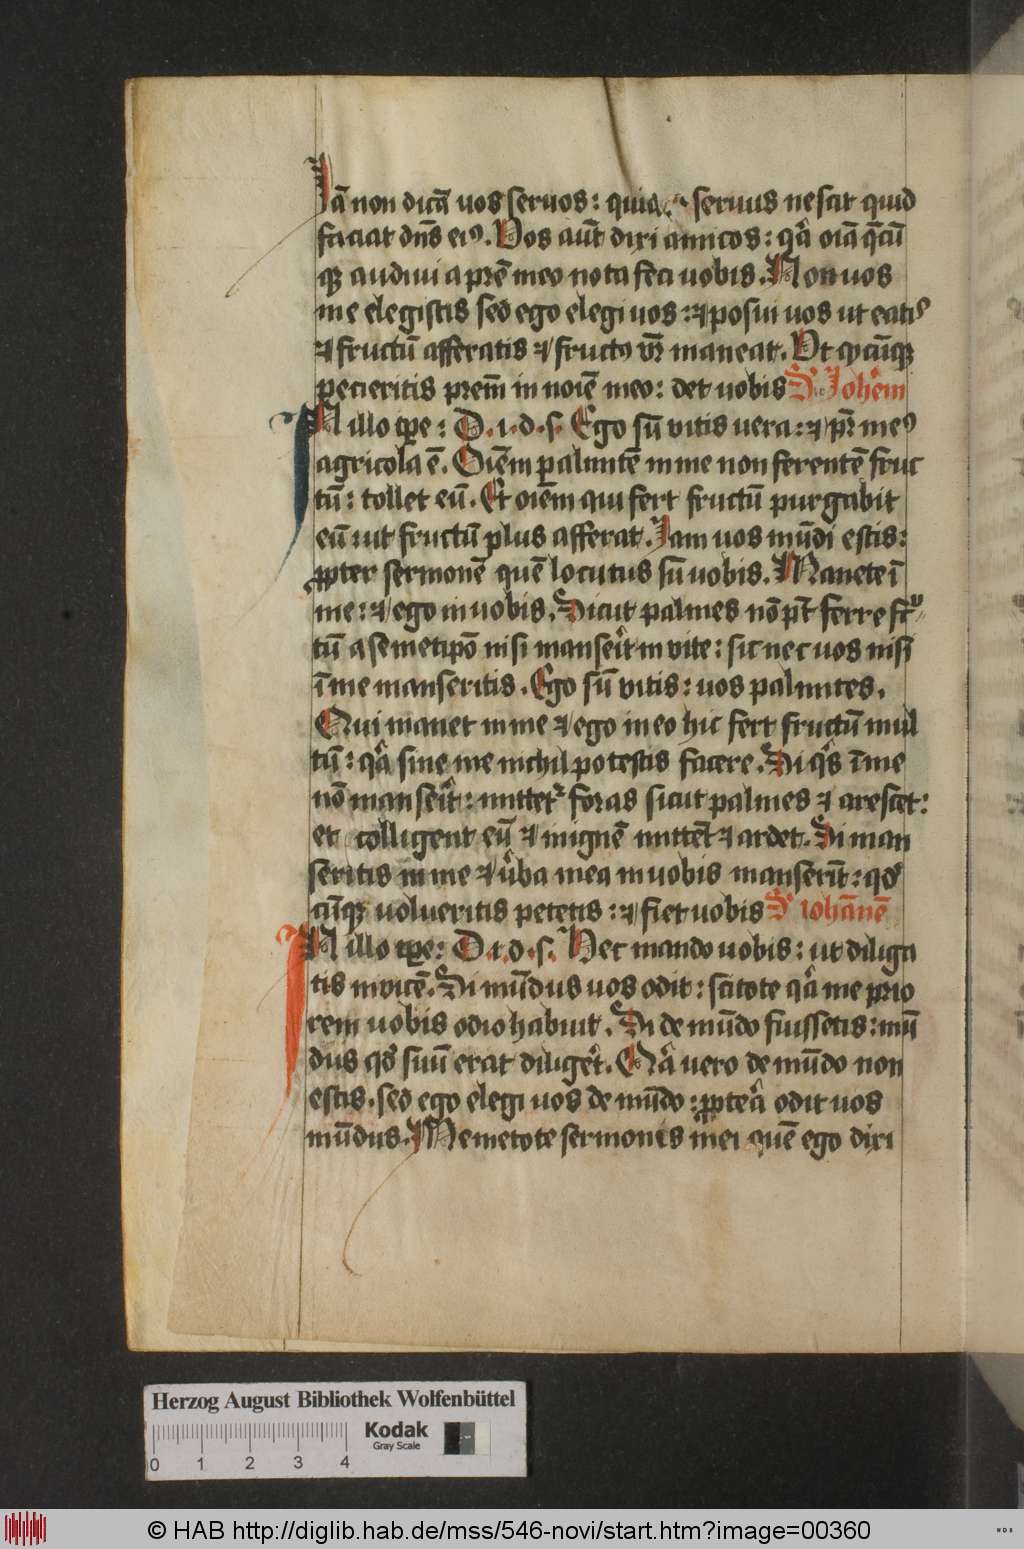 Jā non dicā uos seruos: quia seruus nescit quid
faciat dn̄s eiꝰ. Vos aūt dixi amicos: qͣ oīa q̄cū
qꝫ audiui a pr̄e meo nota feci uobis. Non uos
me elegistis sed ego elegi uos: ⁊ posui uos ut eatiꝰ
⁊ fructū afferatis ⁊ fructꝰ vr̄ maneat. Vt qͦcūqꝫ
pecieritis prem̄ in noīe meo: det uobis S. Johēm
IN illo tꝑe: D. i. d. s. Ego sū vitis uera: ⁊ pr̄ meꝰ
agricola ē. Oīem palmitē in me non ferentē fruc
tū: tollet eū. Et oīem qui fert fructū purgabit
eū ut fructū plus afferat. Jam uos mūdi estis:
ꝓpter sermonē quē locutus sū uobis. Manete ī
me: ⁊ ego in uobis. Sicut palmes nō pt̄ ferre frͧ
tū a semetipō nisi manseͥt in vite: sic nec uos nisi
ī me manseritis. Ego sū vitis: uos palmites.
Qui manet in me ⁊ ego in eo hic fert fructū mul
tū: qͣ sine me nichil potestis facere. Si qͥs ī me
nō manseͥt: mittetᷣ foras sicut palmes ⁊ arescet:
et colligent eū ⁊ in ignē mittēt ⁊ ardet. Si man
seritis in me ⁊ ūba mea in uobis manserīt: qd̄
cūqꝫ uolueritis petetis: ⁊ fiet uobis S iohānē
IN illo tꝑe: D. i. d. s. Hec mando uobis: ut diliga
tis inuicē. Si mūdus uos odit: scitote qͣ me prio
rem uobis odio habuit. Si de mūdo fuissetis: mū
dus qd̄ suū erat diligeͬt. Qͣ uero de mūdo non
estis. sed ego elegi uos de mūdo: ꝓpteͣ odit uos
mūdus. Memetote sermonis mei quē ego dixi
Herzog August Bibliothek Wolfenbüttel
0 1 2 3 4 Kodak
Gray Scale
© HAB http://diglib.hab.de/mss/546-novi/start.htm?image=00360